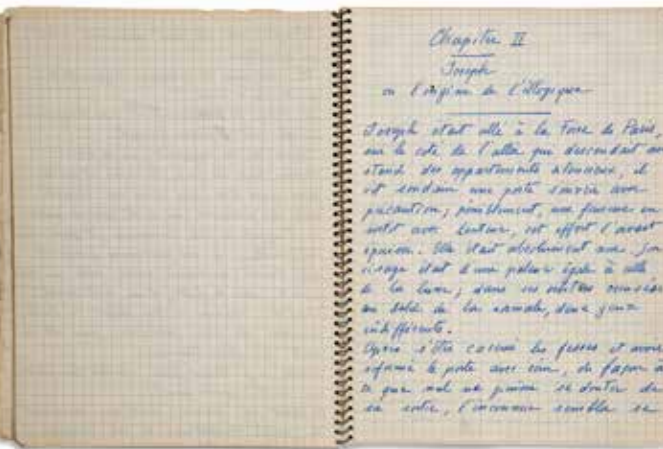 Chapitre II
Joseph
ou l'origine de l'illogique
Joseph était allé à la Foire de Paris,
sur le coté de l'allée qui descendait au
stand des appartements, il
vit soudain une porte s'ouvrir avec
précaution, péniblement, une femme en
sortit avec lenteur, cet effort l'avait
épuisée. Elle était absolument nue. Son
visage était d'une paleur égale à celle
de la lune, dans ses
au delà de la, deux yeux
indifférents.
Après s'être les fesses et avoir
refermé la porte avec soin, de façon à
ce que nul ne puisse se douter de
sa sortie, l'inconnue sembla se